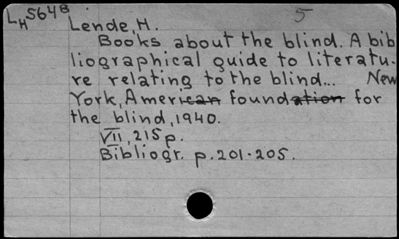 LH564B 5
Lende, H.
Books about the blind. A bib
liographical guide to literatu-
re relating to the blind... New
York, American foundation for
the blind, 1940.
VII, 215 p.
Bibliogr. p. 201-205.